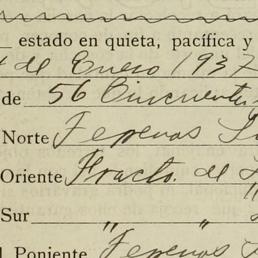 estado en quieta, pacífica y
de Enero 1937
de 56 Cincuenta
Norte Terenos
Oriente Fracto. de
Sur " "
Poniente Terenos